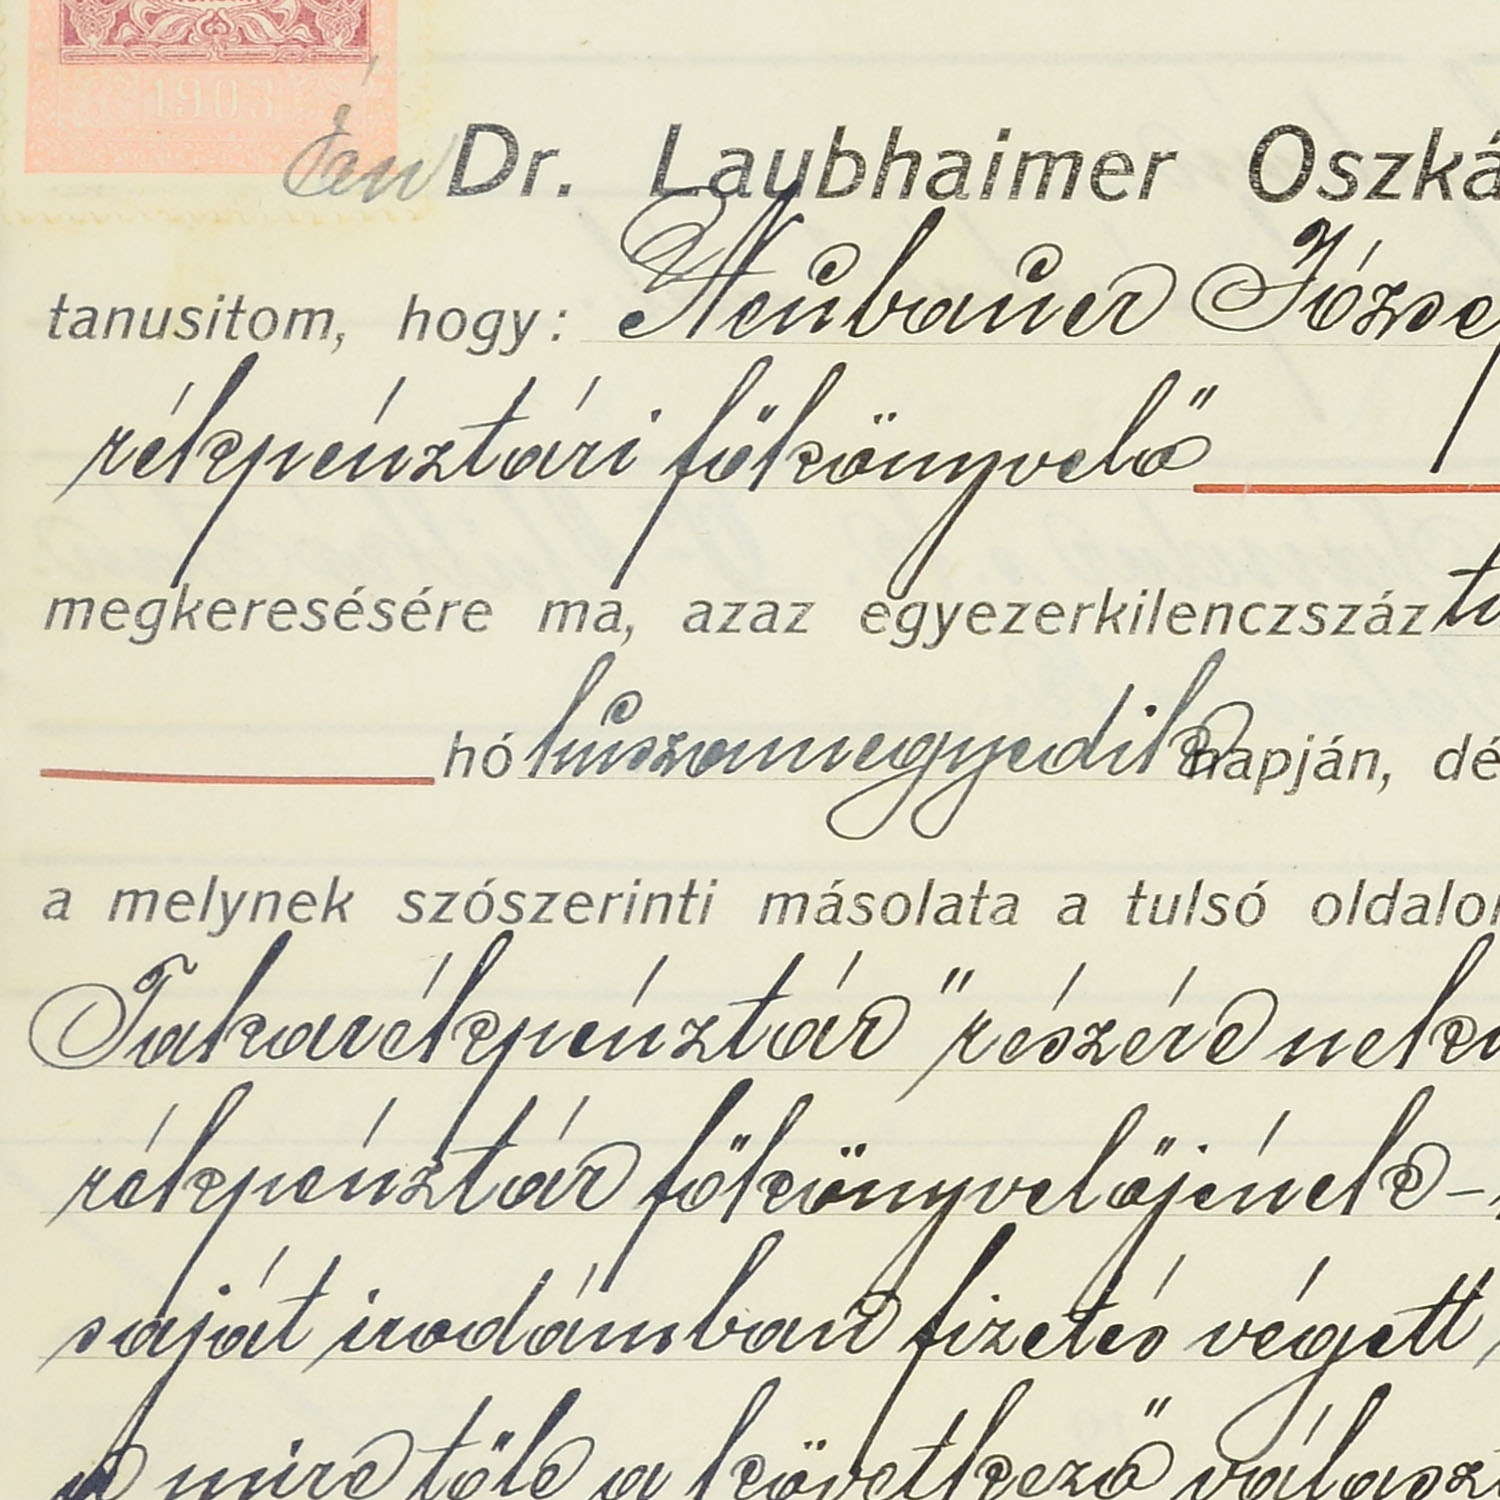 1903
Én Dr. Laubhaimer Oszká
tanusitom, hogy: Neubauer József
rékpénztári főkönyvelő
megkeresésére ma, azaz egyezerkilenczszáz
hó huszonnegyedik napján, dé
a melynek szószerinti másolata a tulsó oldalon
Takarékpénztár" részére neke
rékpénztár főkönyvelőjének –
saját irodámban fizetés végett
a mire tőle a következő válasz